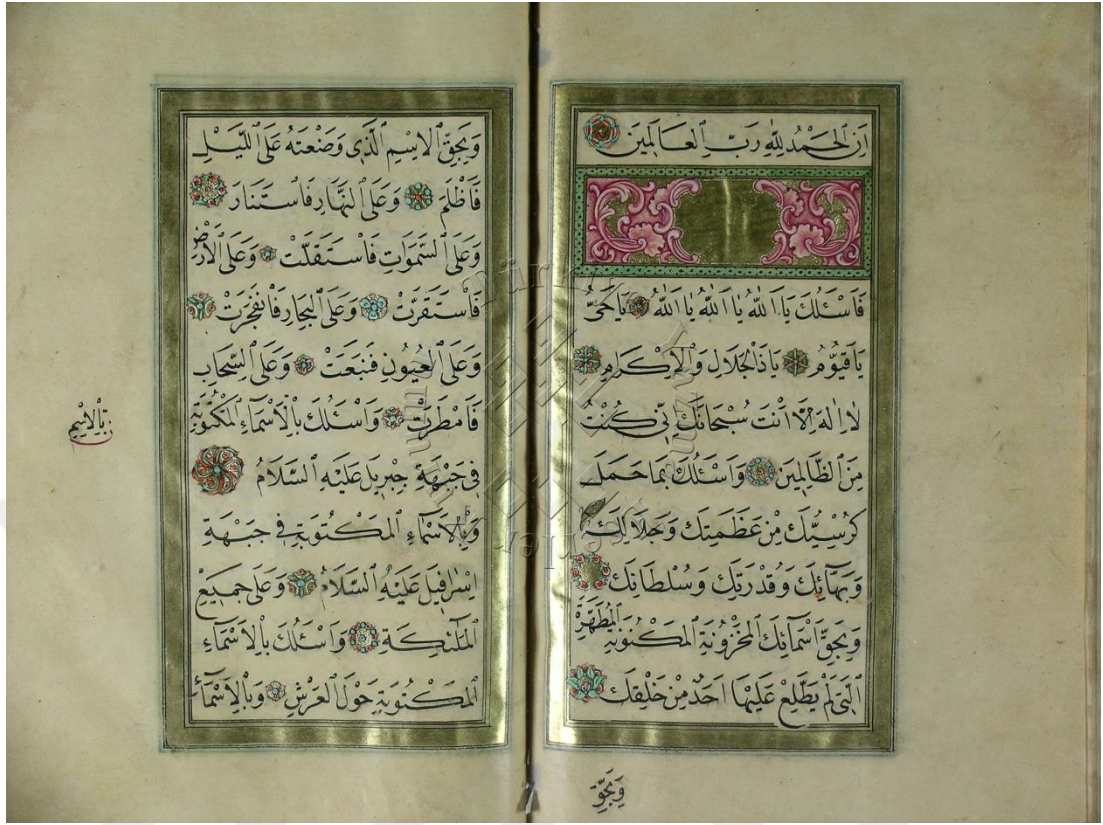 اَنِ الْحَمْدُ لِلّٰهِ رَبِّ الْعَالَمِينَ
فَاَسْئَلُكَ يَا اَللّٰهُ يَا اَللّٰهُ يَا اَللّٰهُ يَا حَيُّ
يَا قَيُّومُ يَا ذَا الْجَلَالِ وَالْاِكْرَامِ
لَا اِلٰهَ اِلَّا اَنْتَ سُبْحَانَكَ اِنِّى كُنْتُ
مِنَ الظَّالِمِينَ وَاَسْئَلُكَ بِمَا حَمَلَ
كُرْسِيُّكَ مِنْ عَظَمَتِكَ وَجَلَالِكَ
وَبَهَائِكَ وَقُدْرَتِكَ وَسُلْطَانِكَ
وَبِحَقِّ اَسْمَائِكَ الْمَخْزُونَةِ الْمَكْنُونَةِ الْمُطَهَّرَةِ
الَّتِى لَمْ يَطَّلِعْ عَلَيْهَا اَحَدٌ مِنْ خَلْقِكَ
وَبِحَقِّ
وَبِحَقِّ الْاِسْمِ الَّذِى وَضَعْتَهُ عَلَى اللَّيْلِ
فَاَظْلَمَ وَعَلَى النَّهَارِ فَاسْتَنَارَ
وَعَلَى السَّمٰوَاتِ فَاسْتَقَلَّتْ وَعَلَى الْاَرْضِ
فَاسْتَقَرَّتْ وَعَلَى الْبِحَارِ فَانْفَجَرَتْ
وَعَلَى الْعُيُونِ فَنَبَعَتْ وَعَلَى السَّحَابِ
فَاَمْطَرَتْ وَاَسْئَلُكَ بِالْاَسْمَاءِ الْمَكْتُوبَةِ
فِى جَبْهَةِ جِبْرِيلَ عَلَيْهِ السَّلَامُ
وَبِالْاَسْمَاءِ الْمَكْتُوبَةِ فِى جَبْهَةِ
اِسْرَافِيلَ عَلَيْهِ السَّلَامُ وَعَلَى جَمِيعِ
الْمَلٰئِكَةِ وَاَسْئَلُكَ بِالْاَسْمَاءِ
الْمَكْتُوبَةِ حَوْلَ الْعَرْشِ وَبِالْاَسْمَاءِ
بِالْاِسْمِ